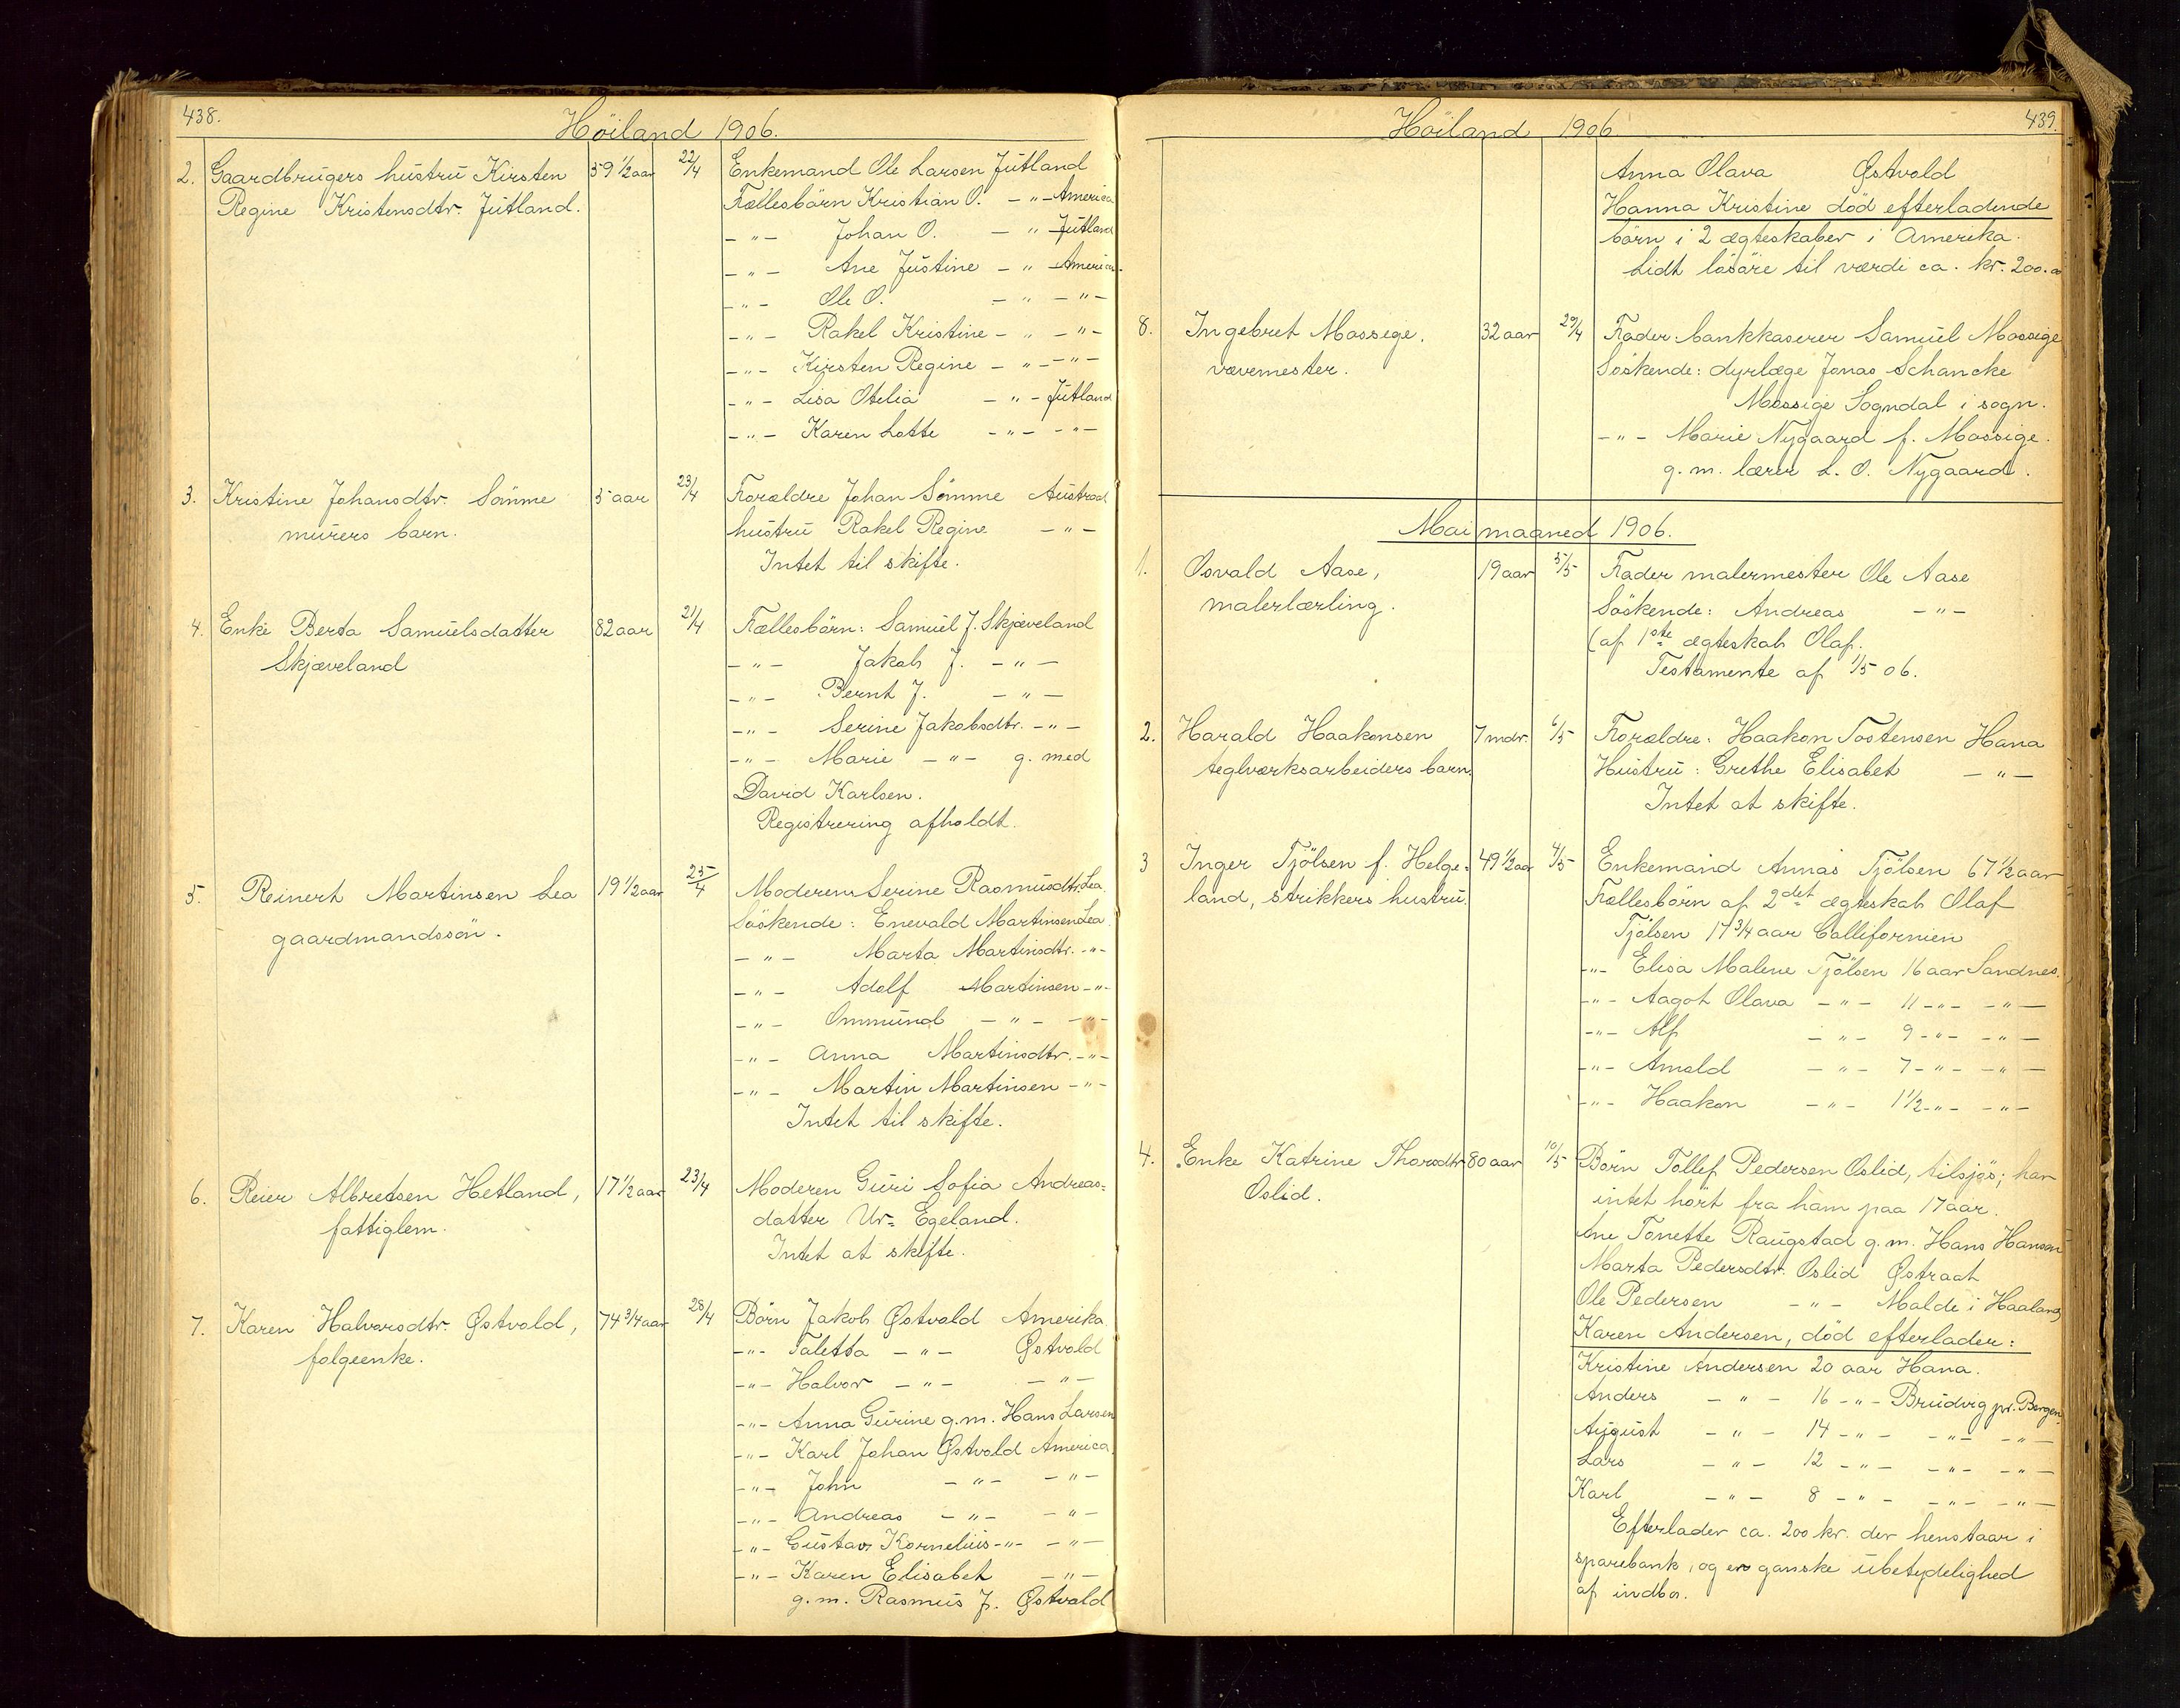 438.
Höiland 1906.
2. Gaardbrugers hustru Kirsten 59 1/2 aar 22/4 Enkemand Ole Larsen Jutland
Regine Kristensdtr. Jutland. Fællesbörn Kristian O. -"- America
-"- Johan O. -"- Jutland
-"- Ane Justine -"- America.
-"- Ole O. -"- -"-
-"- Rakel Kristine -"- -"-
-"- Kirsten Regine -"- -"-
-"- Lisa Otelia -"- Jutland
-"- Karen Lotte -"- -"-
3. Kristine Johansdtr. Sömme 5 aar 23/4 Forældre Johan Sömme Austraat
murers barn. hustru Rakel Regine -"-
Intet til skifte.
4. Enke Berta Samuelsdatter 82 aar 21/4 Fællesbörn: Samuel J. Skjæveland
Skjæveland -"- Jakob J. -"-
-"- Bernt J. -"-
-"- Serine Jakobsdtr. -"-
-"- Marie -"- g. med
David Karlsen.
Registrering afholdt.
5. Reinert Martinsen Lea 19 1/2 aar 25/4 Moderen Serine Rasmusdtr. Lea.
gaardmandssön. Söskende: Enevald Martinsen Lea.
-"- Marta Martinsdtr. -"-
-"- Adolf Martinsen -"-
-"- Ommund -"- -"-
-"- Anna Martinsdtr. -"-
-"- Martin Martinsen -"-
Intet til skifte.
6. Reier Albretsen Hetland, 17 1/2 aar 23/4 Moderen Guri Sofia Andreas=
fattiglem. datter Ur= Egeland.
Intet at skifte.
7. Karen Halvorsdtr. Østvold, 74 3/4 aar 28/4 Börn Jakob Østvold Amerika
folgeenke. -"- Taletta -"- Østvold
-"- Halvor -"- -"-
-"- Anna Gurine g.m. Hans Larsen
-"- Karl Johan Østvold America.
-"- John -"- -"-
-"- Andreas -"- -"-
-"- Gustav Kornelius -"- -"-
-"- Karen Elisabet -"-
g.m. Rasmus J. Østvold
Höiland 1906
439.
Anna Olava Østvold
Hanna Kristine död efterladende
börn i 2 ægteskaber i Amerika.
Lidt lösöre til værdi ca. kr. 200.00
8. Ingebret Mossige. 32 aar 29/4 Fader bankkaserer Samuel Mossige
vævemester. Söskende: dyrlæge Jonas Schancke
Mossige Sogndal i sogn.
-"- Marie Nygaard f. Mossige.
g. m. lærer L. O. Nygaard.
Mai maaned 1906.
1. Osvald Aase, 19 aar 5/5 Fader malermester Ole Aase
malerlærling. Söskende: Andreas -"-
(af 1ste ægteskab Olaf.
Testamente af 1/5 06.
2. Harald Haakonsen 7 mdr. 6/5 Forældre: Haakon Tostensen Hana
teglværksarbeiders barn. Hustru: Grethe Elisabet -"-
Intet at skifte.
3 Inger Tjölsen f. Helge= 49 1/2 aar 4/5 Enkemand Annas Tjölsen 67 1/2 aar
land, strikkers hustru. Fællesbörn af 2det ægteskab Olaf
Tjölsen 17 3/4 aar Callifornien
-"- Elisa Malene Tjölsen 16 aar Sandnes.
-"- Aagot Olava -"- 11 -"- -"-
-"- Alf -"- 9 -"- -"-
-"- Arnold -"- 7 -"- -"-
-"- Haakon -"- 1 1/2 -"- -"-
4. Enke Katrine Thorsdtr 80 aar 10/5 Börn Tollef Pedersen Oslid, tilsjös; har
Oslid. intet hört fra ham paa 17 aar.
Ane Tonette Raugstad g.m. Hans Hansen
Marta Pedersdtr. Oslid Østraat
Ole Pedersen -"- Malde i Haaland
Karen Andersen, död efterlader:
Kristine Andersen 20 aar Hana.
Anders -"- 16 -"- Brudvig pr. Bergen.
August -"- 14 -"- -"- -"-
Lars -"- 12 -"- -"- -"-
Karl -"- 8 -"- -"- -"-
Efterlader ca. 200 kr. der henstaar i
sparebank, og en ganske ubetydelighed
af indbo.